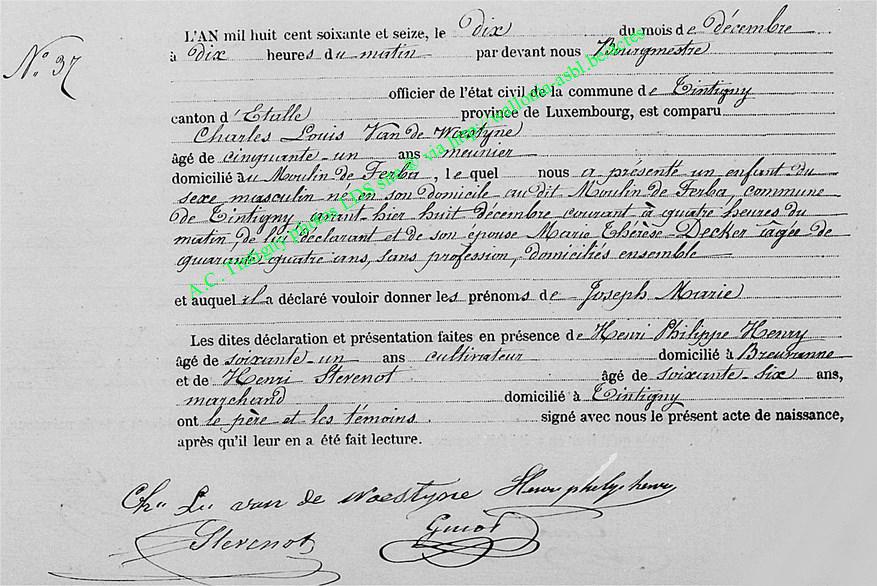 N° 37
L'AN mil huit cent soixante et seize, le dix du mois de décembre
à dix heures du matin par devant nous Bourgmestre
officier de l'état civil de la commune de Tintigny
canton d'Etalle province de Luxembourg, est comparu
Charles Louis Van de Woestyne
âgé de cinquante-un ans meunier
domicilié au Moulin de Ferba, lequel nous a présenté un enfant du
sexe masculin né en son domicile au dit Moulin de Ferba, commune
de Tintigny, avant-hier huit décembre courant à quatre heures du
matin, de lui déclarant et de son épouse Marie Thérèse Decker âgée de
quarante quatre ans, sans profession, domiciliés ensemble
et auquel il a déclaré vouloir donner les prénoms de Joseph Marie
Les dites déclaration et présentation faites en présence de Henri Philippe Henry
âgé de soixante-un ans cultivateur domicilié à Breuvanne
et de Henri Sterenot âgé de soixante-six ans,
marchand domicilié à Tintigny
ont le père et les témoins signé avec nous le présent acte de naissance,
après qu'il leur en a été fait lecture.
Ch. L. van de Woestyne Henri henry
Sterenot
A.C. Tintigny photos LDS via http wallonia-asbl.be/actes